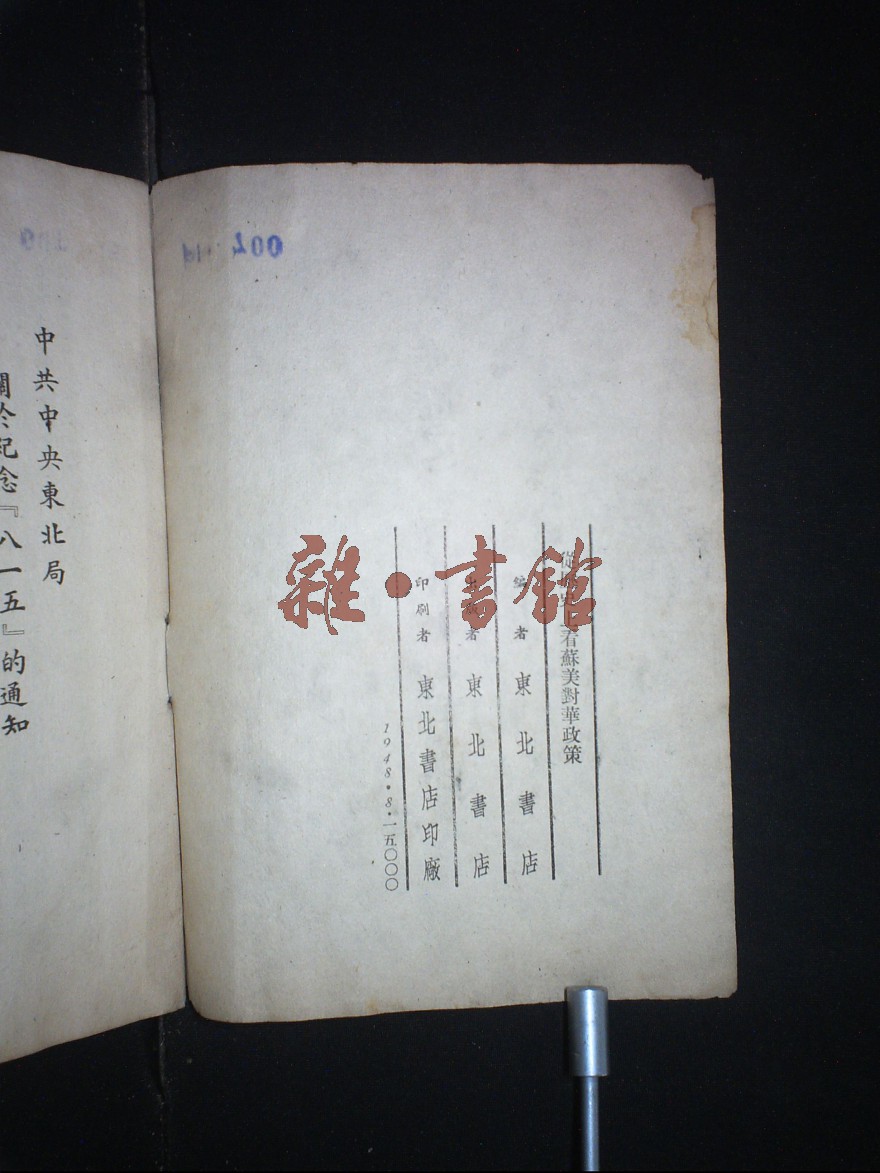 從歷史上看蘇美對華政策
編者 東北書店
出版者 東北書店
印刷者 東北書店印廠
1948.8.一五〇〇〇
中共中央東北局
關於紀念『八一五』的通知
雜·書館